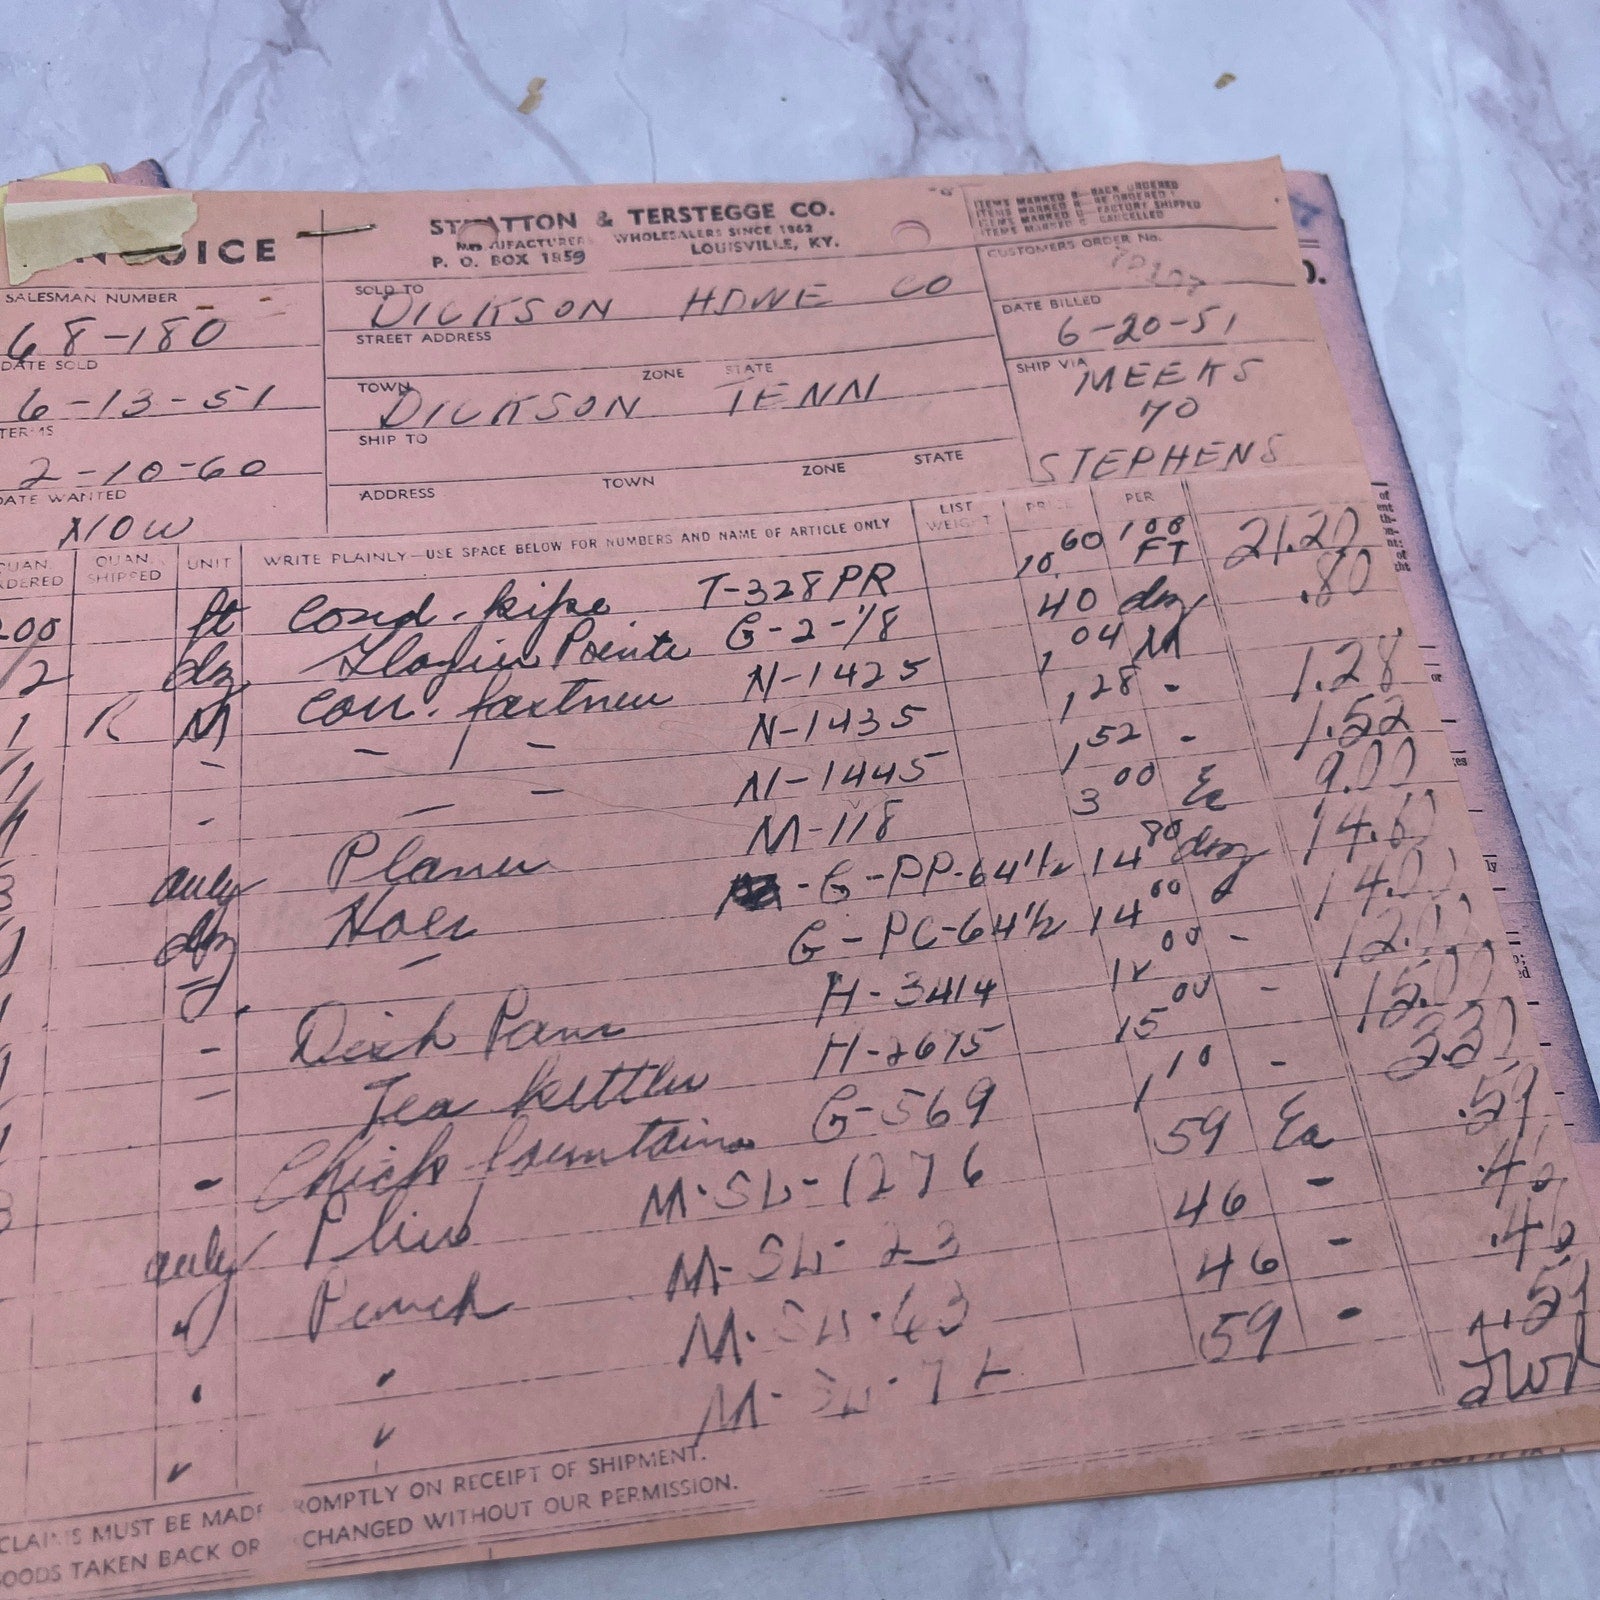 INVOICE
STRATTON & TERSTEGGE CO.
MANUFACTURERS WHOLESALERS SINCE 1862
P. O. BOX 1859 LOUISVILLE, KY.
ITEMS MARKED B—BACK ORDERED
ITEMS MARKED R—BE ORDERED
ITEMS MARKED D—FACTORY SHIPPED
ITEMS MARKED C—CANCELLED
CUSTOMERS ORDER No.
SALESMAN NUMBER
68-180
SOLD TO
DICKSON HDWE CO
DATE BILLED
6-20-51
STREET ADDRESS
DATE SOLD
6-13-51
TOWN ZONE STATE
DICKSON TENN
SHIP VIA
MEEKS
70
STEPHENS
TERMS
2-10-60
SHIP TO
ADDRESS TOWN ZONE STATE
DATE WANTED
NOW
QUAN. ORDERED QUAN. SHIPPED UNIT WRITE PLAINLY—USE SPACE BELOW FOR NUMBERS AND NAME OF ARTICLE ONLY LIST WEIGHT PRICE PER
200 ft Cond. pipe T-328PR 10.60 100 FT 21.20
2 dz Glazier Points G-2-1/8 40 dz .80
1 R M Corr. fastner N-1425 1.04 M
1 - - / - N-1435 1.28 - 1.28
1 - - - N-1445 1.52 - 1.52
3 only Planer M-118 3 00 Ea 9.00
1 dz Hoes - G-PP-64 1/2 14 80 dz 14.80
- G-PC-64 1/2 14 00 14.00
- Dish Pans H-3414 12 00 - 12.00
- Tea kettles H-2675 15 00 - 15.00
3 - Chick fountains G-569 1.10 - 3.30
only Plier M-SL-1276 59 Ea .59
" Punch M-SL-23 46 - .46
M-SL-63 46 - .46
M-SL-7 59 - .59
CLAIMS MUST BE MADE PROMPTLY ON RECEIPT OF SHIPMENT.
GOODS TAKEN BACK OR CHANGED WITHOUT OUR PERMISSION.